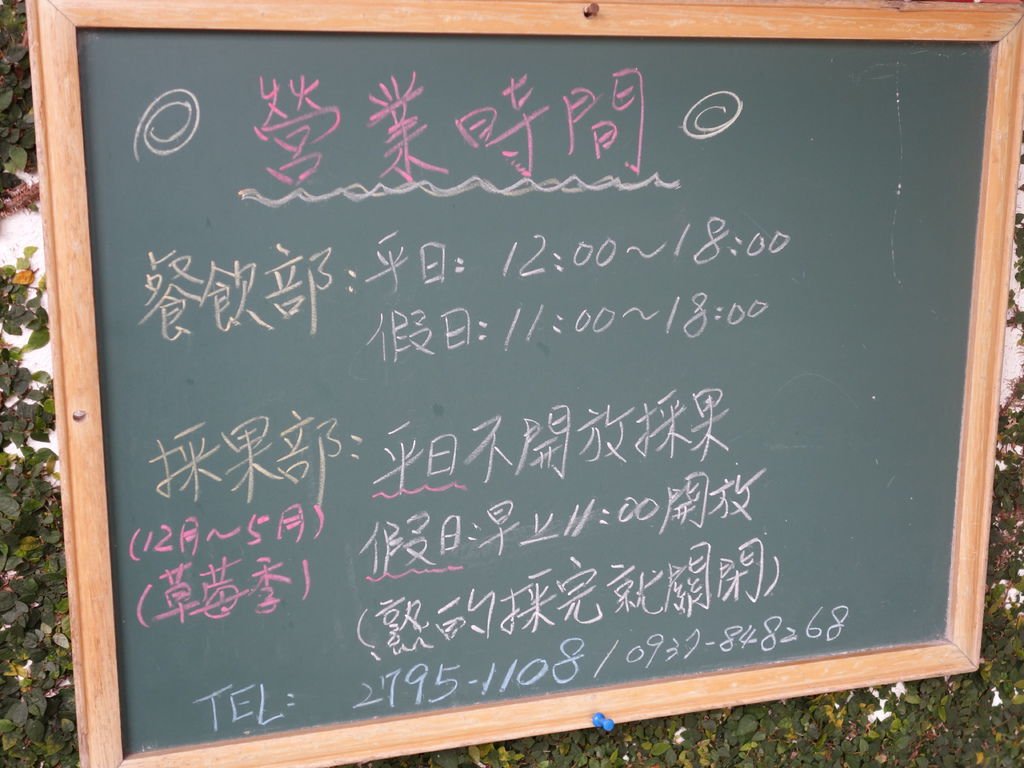 營業時間
餐飲部:平日: 12:00~18:00
假日:11:00~18:00
採果部:平日不開放採果
(12月~5月) 假日:早上11:00開放
(草莓季) (熟的採完就關閉)
TEL: 2795-1108/0937-848268